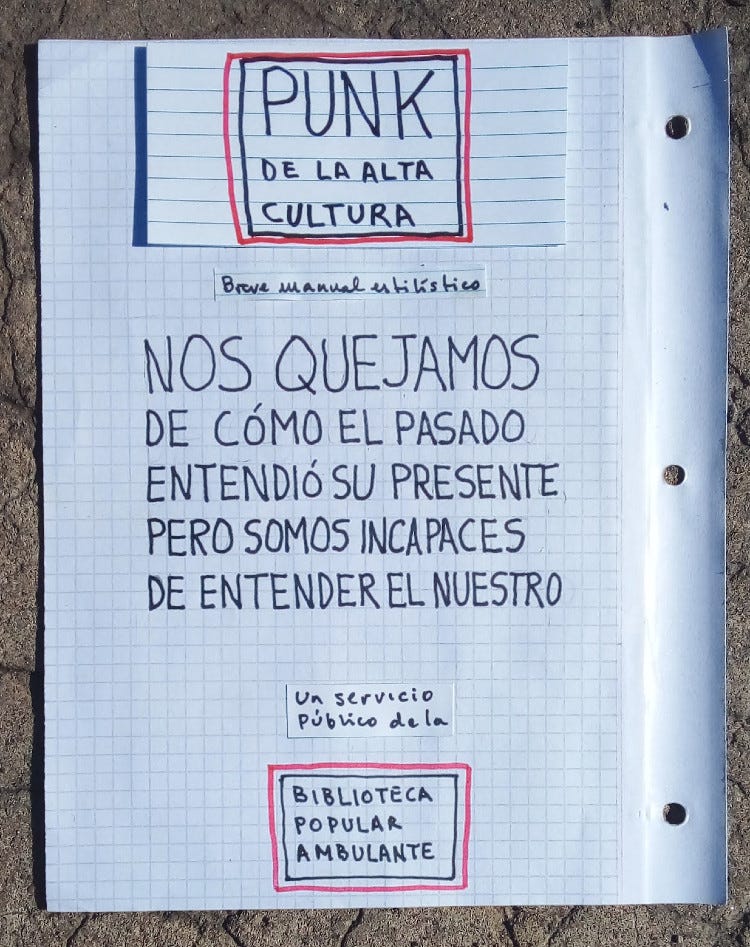 PUNK
DE LA ALTA
CULTURA
Breve manual estilístico
NOS QUEJAMOS
DE CÓMO EL PASADO
ENTENDIÓ SU PRESENTE
PERO SOMOS INCAPACES
DE ENTENDER EL NUESTRO
Un servicio
público de la
BIBLIOTECA
POPULAR
AMBULANTE